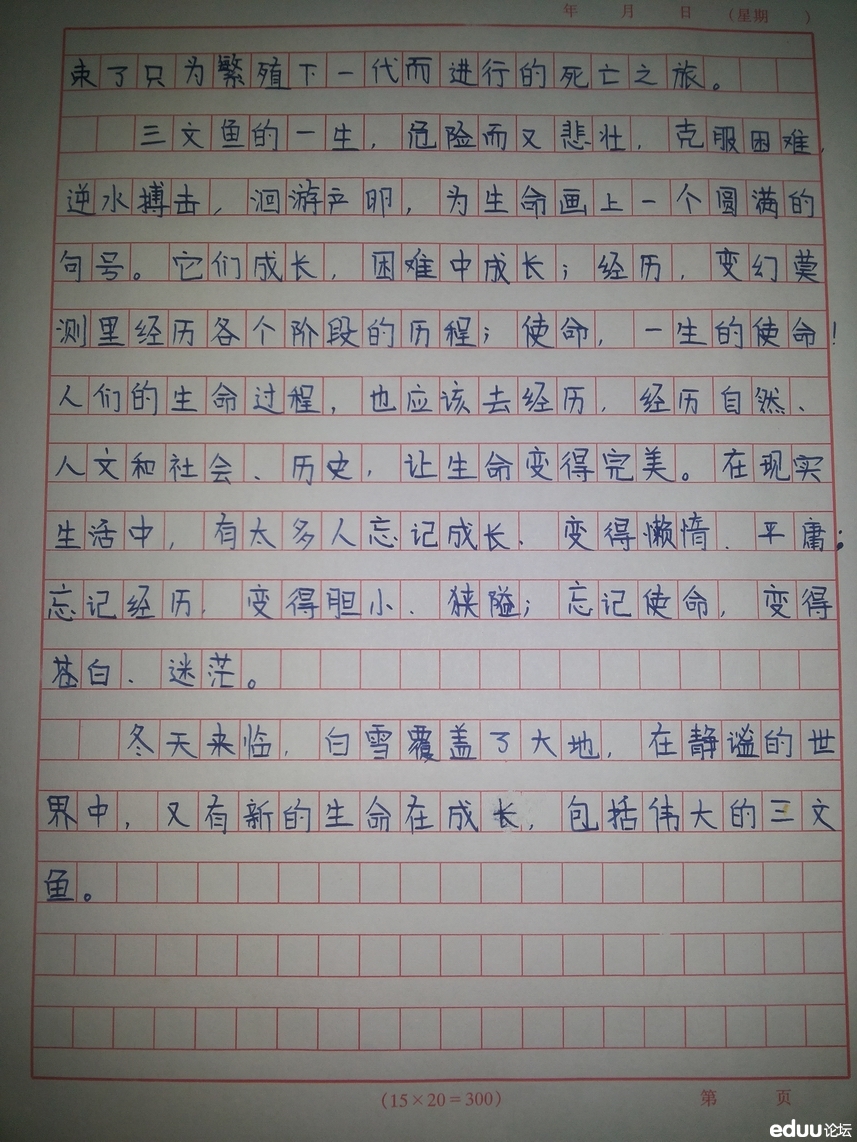 年 月 日 （星期 ）
束了只为繁殖下一代而进行的死亡之旅。
三文鱼的一生，危险而又悲壮，克服困难，
逆水搏击，洄游产卵，为生命画上一个圆满的
句号。它们成长，困难中成长；经历，变幻莫
测里经历各个阶段的历程；使命，一生的使命！
人们的生命过程，也应该去经历，经历自然、
人文和社会、历史，让生命变得完美。在现实
生活中，有太多人忘记成长、变得懒惰、平庸；
忘记经历，变得胆小、狭隘；忘记使命，变得
苍白、迷茫。
冬天来临，白雪覆盖了大地，在静谧的世
界中，又有新的生命在成长，包括伟大的三文
鱼。
（15×20＝300） 第 页
eduu论坛